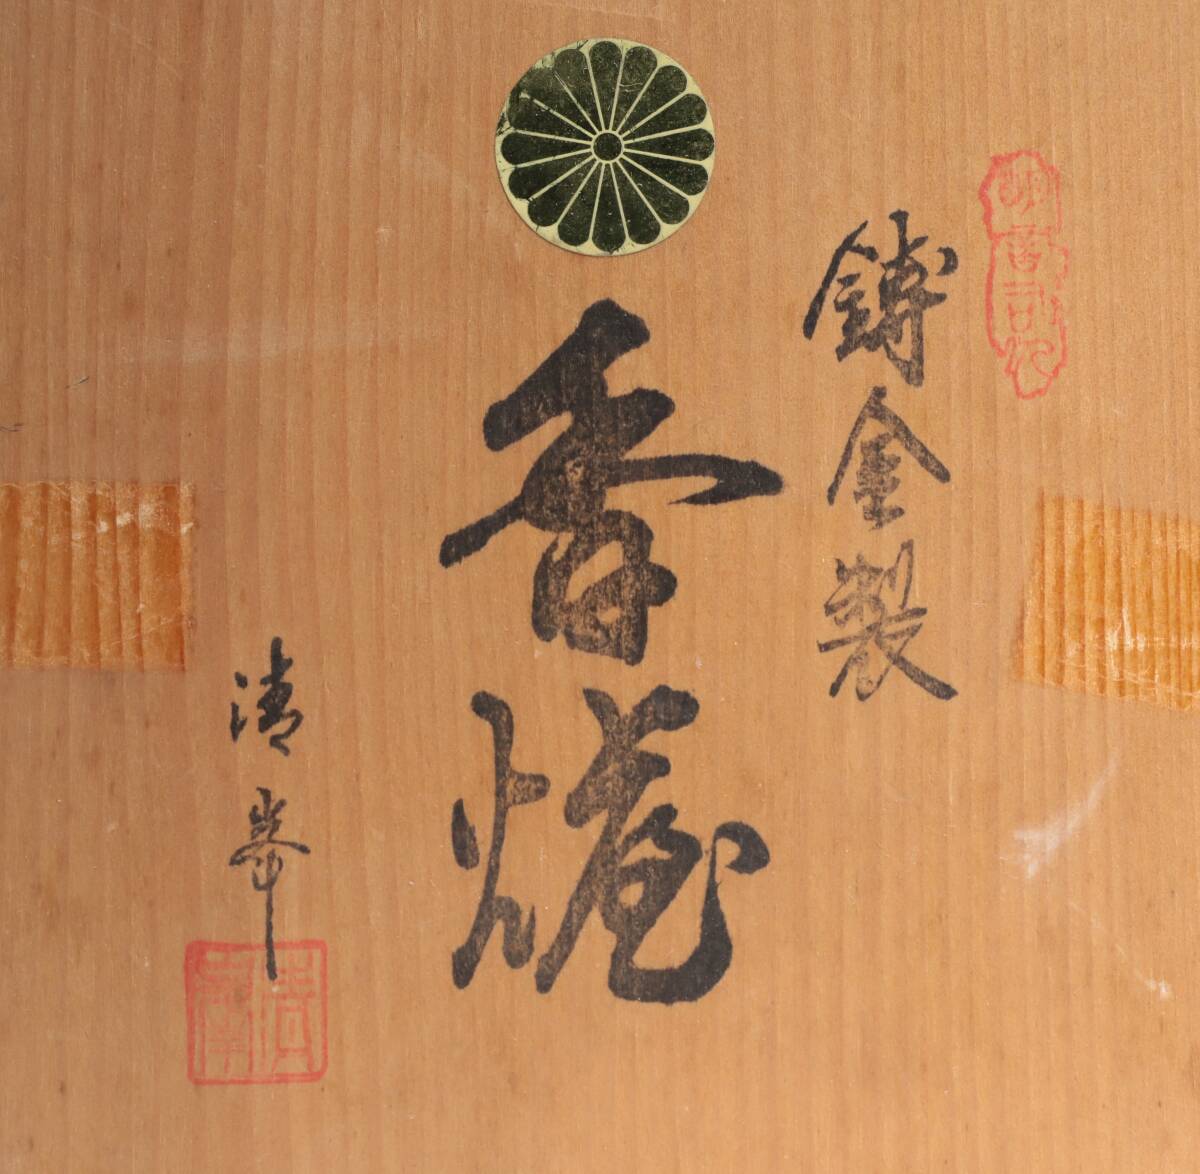 鋳金製
香炉
清峯